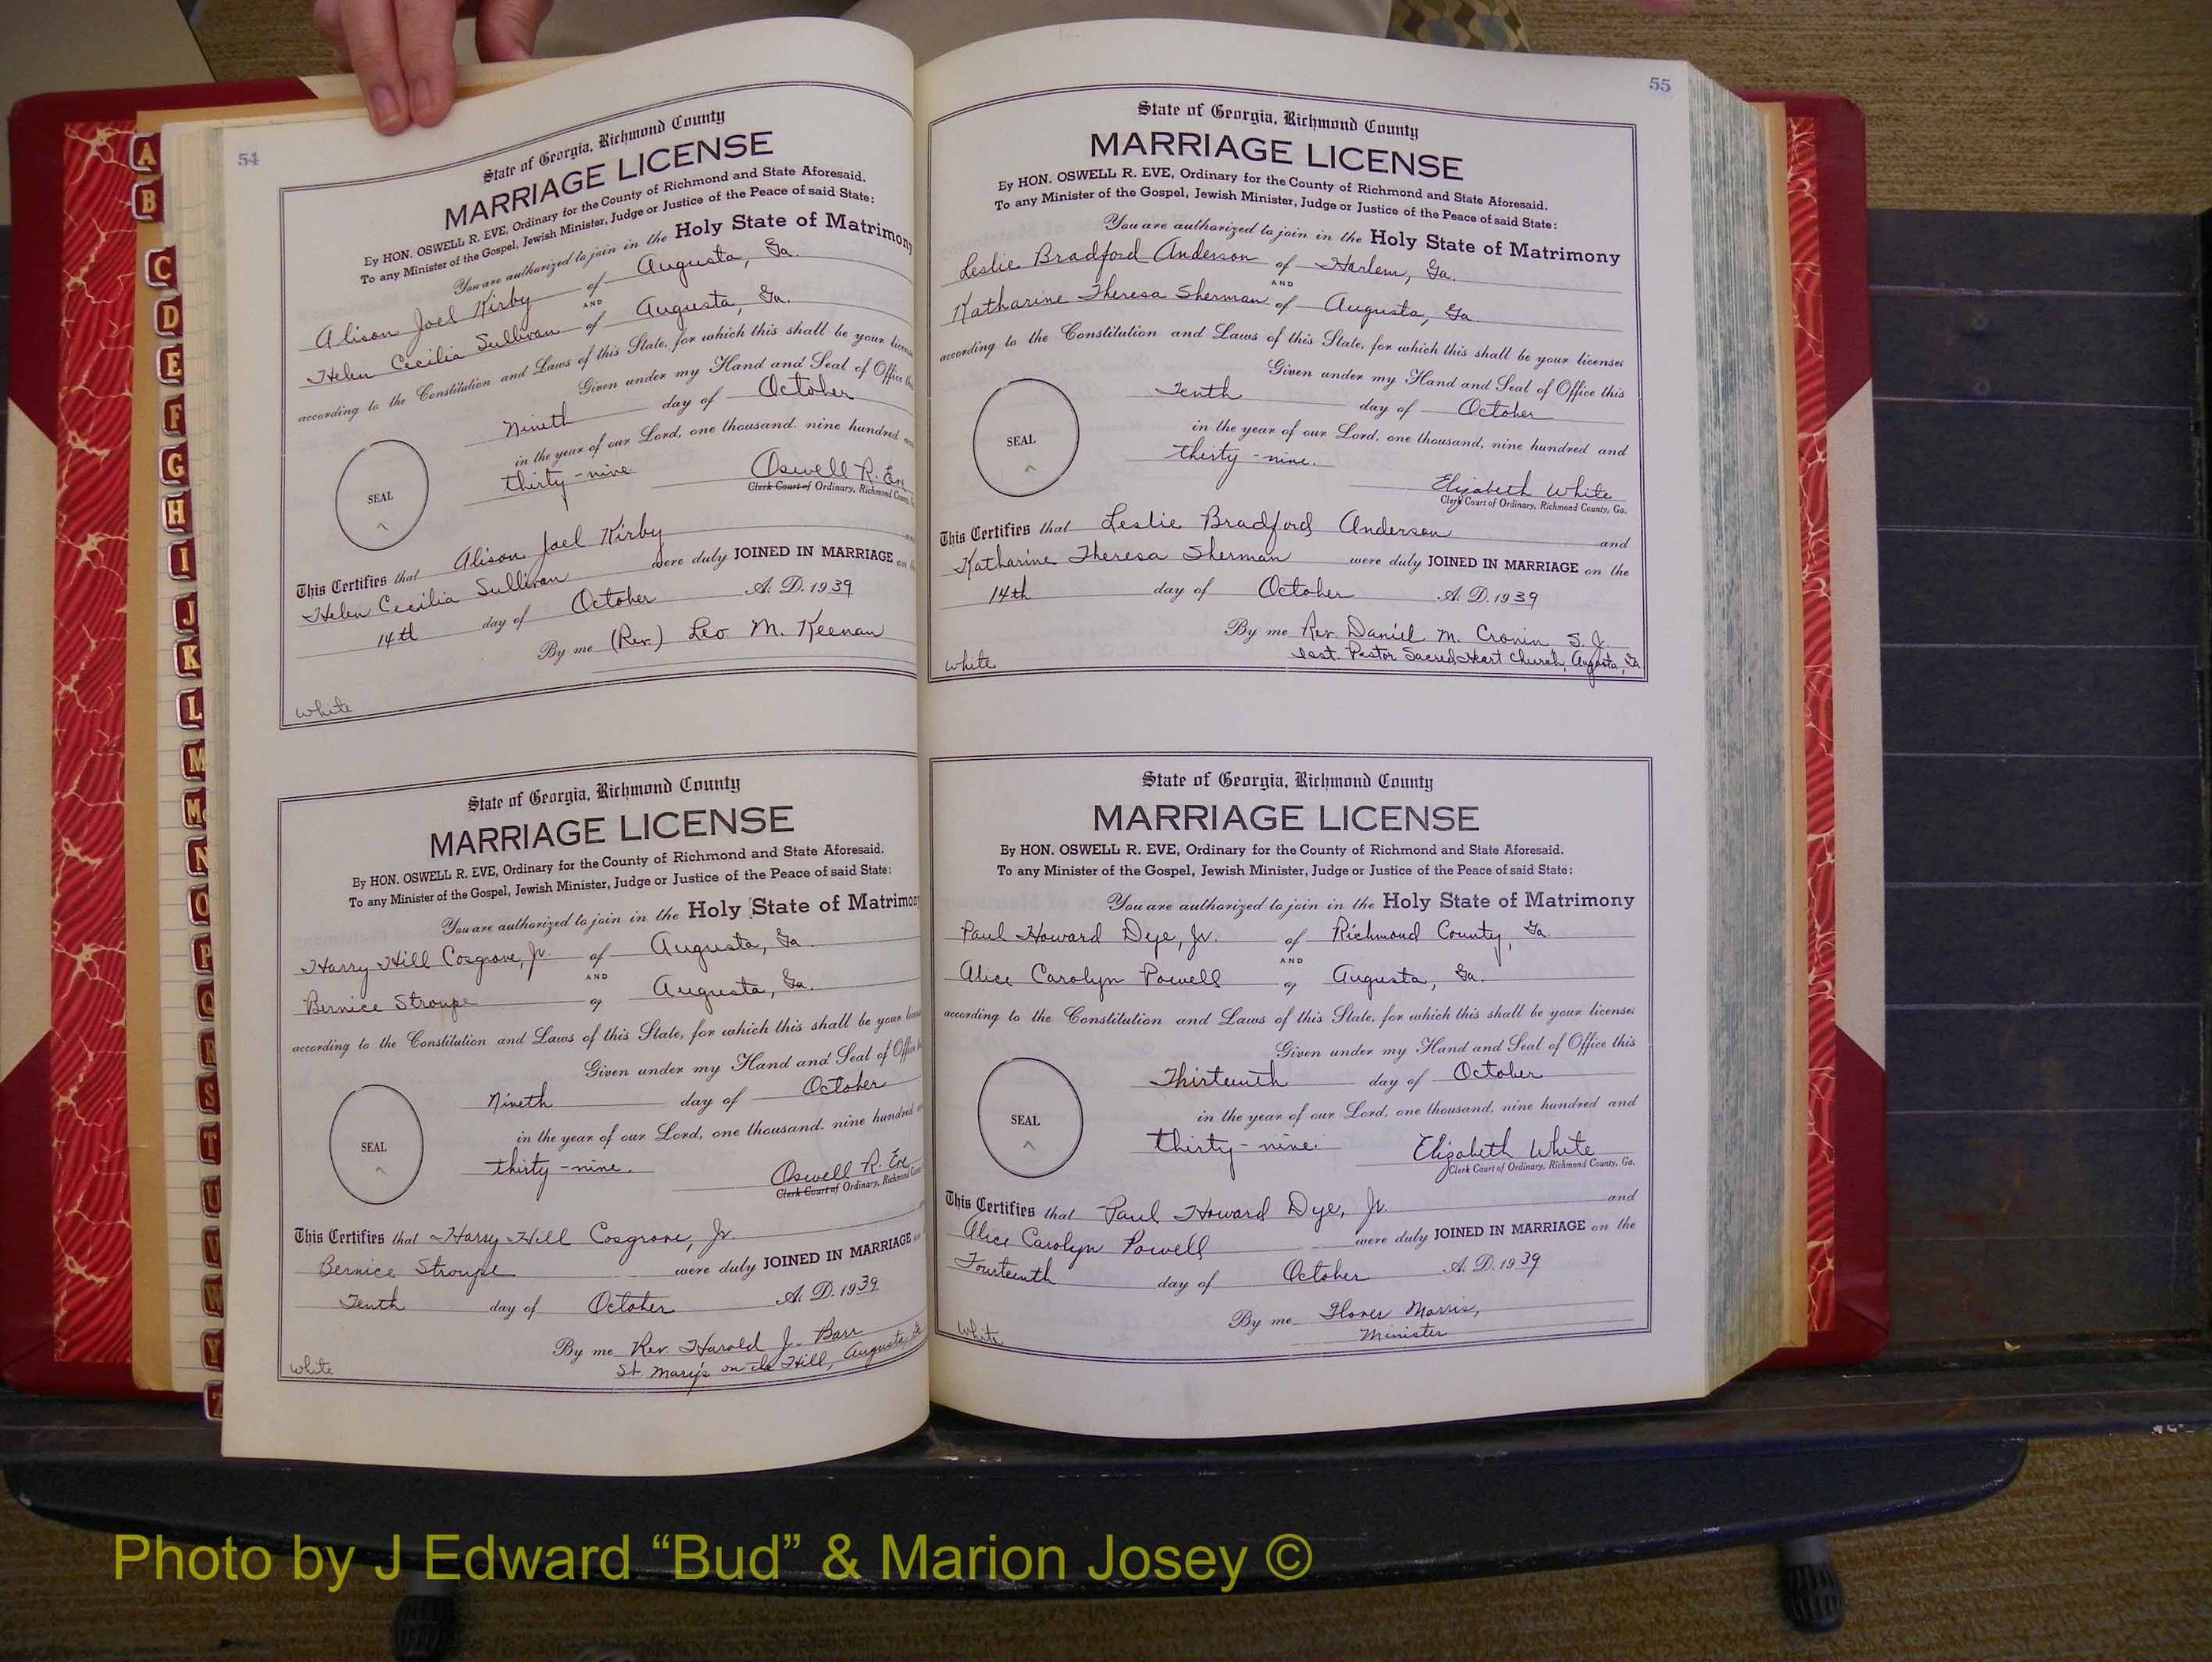 54
State of Georgia, Richmond County
MARRIAGE LICENSE
By HON. OSWELL R. EVE, Ordinary for the County of Richmond and State Aforesaid.
To any Minister of the Gospel, Jewish Minister, Judge or Justice of the Peace of said State:
You are authorized to join in the Holy State of Matrimony
Alison Joel Kirby of Augusta, Ga.
AND
Helen Cecilia Sullivan of Augusta, Ga.
according to the Constitution and Laws of this State, for which this shall be your license
Given under my Hand and Seal of Office
Nineth day of October
in the year of our Lord, one thousand, nine hundred
thirty-nine
SEAL
Oswell R. Eve
Clerk Court of Ordinary, Richmond
This Certifies that Alison Joel Kirby
Helen Cecilia Sullivan were duly JOINED IN MARRIAGE on
14th day of October A. D. 1939
By me (Rev.) Leo M. Keenan
White
State of Georgia, Richmond County
MARRIAGE LICENSE
By HON. OSWELL R. EVE, Ordinary for the County of Richmond and State Aforesaid.
To any Minister of the Gospel, Jewish Minister, Judge or Justice of the Peace of said State:
You are authorized to join in the Holy State of Matrimony
Harry Hill Cosgrove, Jr. of Augusta, Ga.
AND
Bernice Stroupe of Augusta, Ga.
according to the Constitution and Laws of this State, for which this shall be your
Given under my Hand and Seal of Office
Nineth day of October
in the year of our Lord, one thousand, nine hundred
thirty-nine.
SEAL
Oswell R. Eve
Clerk Court of Ordinary, Richmond
This Certifies that Harry Hill Cosgrove, Jr.
Bernice Stroupe were duly JOINED IN MARRIAGE
Tenth day of October A. D. 1939
By me Rev. Harold J. Barr
St. Mary's on the Hill, Augusta,
White
55
State of Georgia, Richmond County
MARRIAGE LICENSE
By HON. OSWELL R. EVE, Ordinary for the County of Richmond and State Aforesaid.
To any Minister of the Gospel, Jewish Minister, Judge or Justice of the Peace of said State:
You are authorized to join in the Holy State of Matrimony
Leslie Bradford Anderson of Harlem, Ga.
AND
Katharine Theresa Sherman of Augusta, Ga.
according to the Constitution and Laws of this State, for which this shall be your license:
Given under my Hand and Seal of Office this
Tenth day of October
in the year of our Lord, one thousand, nine hundred and
thirty-nine.
SEAL
Elizabeth White
Clerk Court of Ordinary, Richmond County, Ga.
This Certifies that Leslie Bradford Anderson and
Katharine Theresa Sherman were duly JOINED IN MARRIAGE on the
14th day of October A. D. 1939
By me Rev. Daniel M. Cronin S. J.
Pastor Sacred Heart Church, Augusta, Ga
White
State of Georgia, Richmond County
MARRIAGE LICENSE
By HON. OSWELL R. EVE, Ordinary for the County of Richmond and State Aforesaid.
To any Minister of the Gospel, Jewish Minister, Judge or Justice of the Peace of said State:
You are authorized to join in the Holy State of Matrimony
Paul Howard Dye, Jr. of Richmond County, Ga.
AND
Alice Carolyn Powell of Augusta, Ga.
according to the Constitution and Laws of this State, for which this shall be your license:
Given under my Hand and Seal of Office this
Thirteenth day of October
in the year of our Lord, one thousand, nine hundred and
thirty-nine.
SEAL
Elizabeth White
Clerk Court of Ordinary, Richmond County, Ga.
This Certifies that Paul Howard Dye, Jr. and
Alice Carolyn Powell were duly JOINED IN MARRIAGE on the
Fourteenth day of October A. D. 1939
By me Morris,
Minister
White
A
B
C
D
E
F
G
H
I
J
K
L
M
M
N
O
P
Q
R
S
T
U
V
W
Y
Z
Photo by J Edward “Bud” & Marion Josey ©